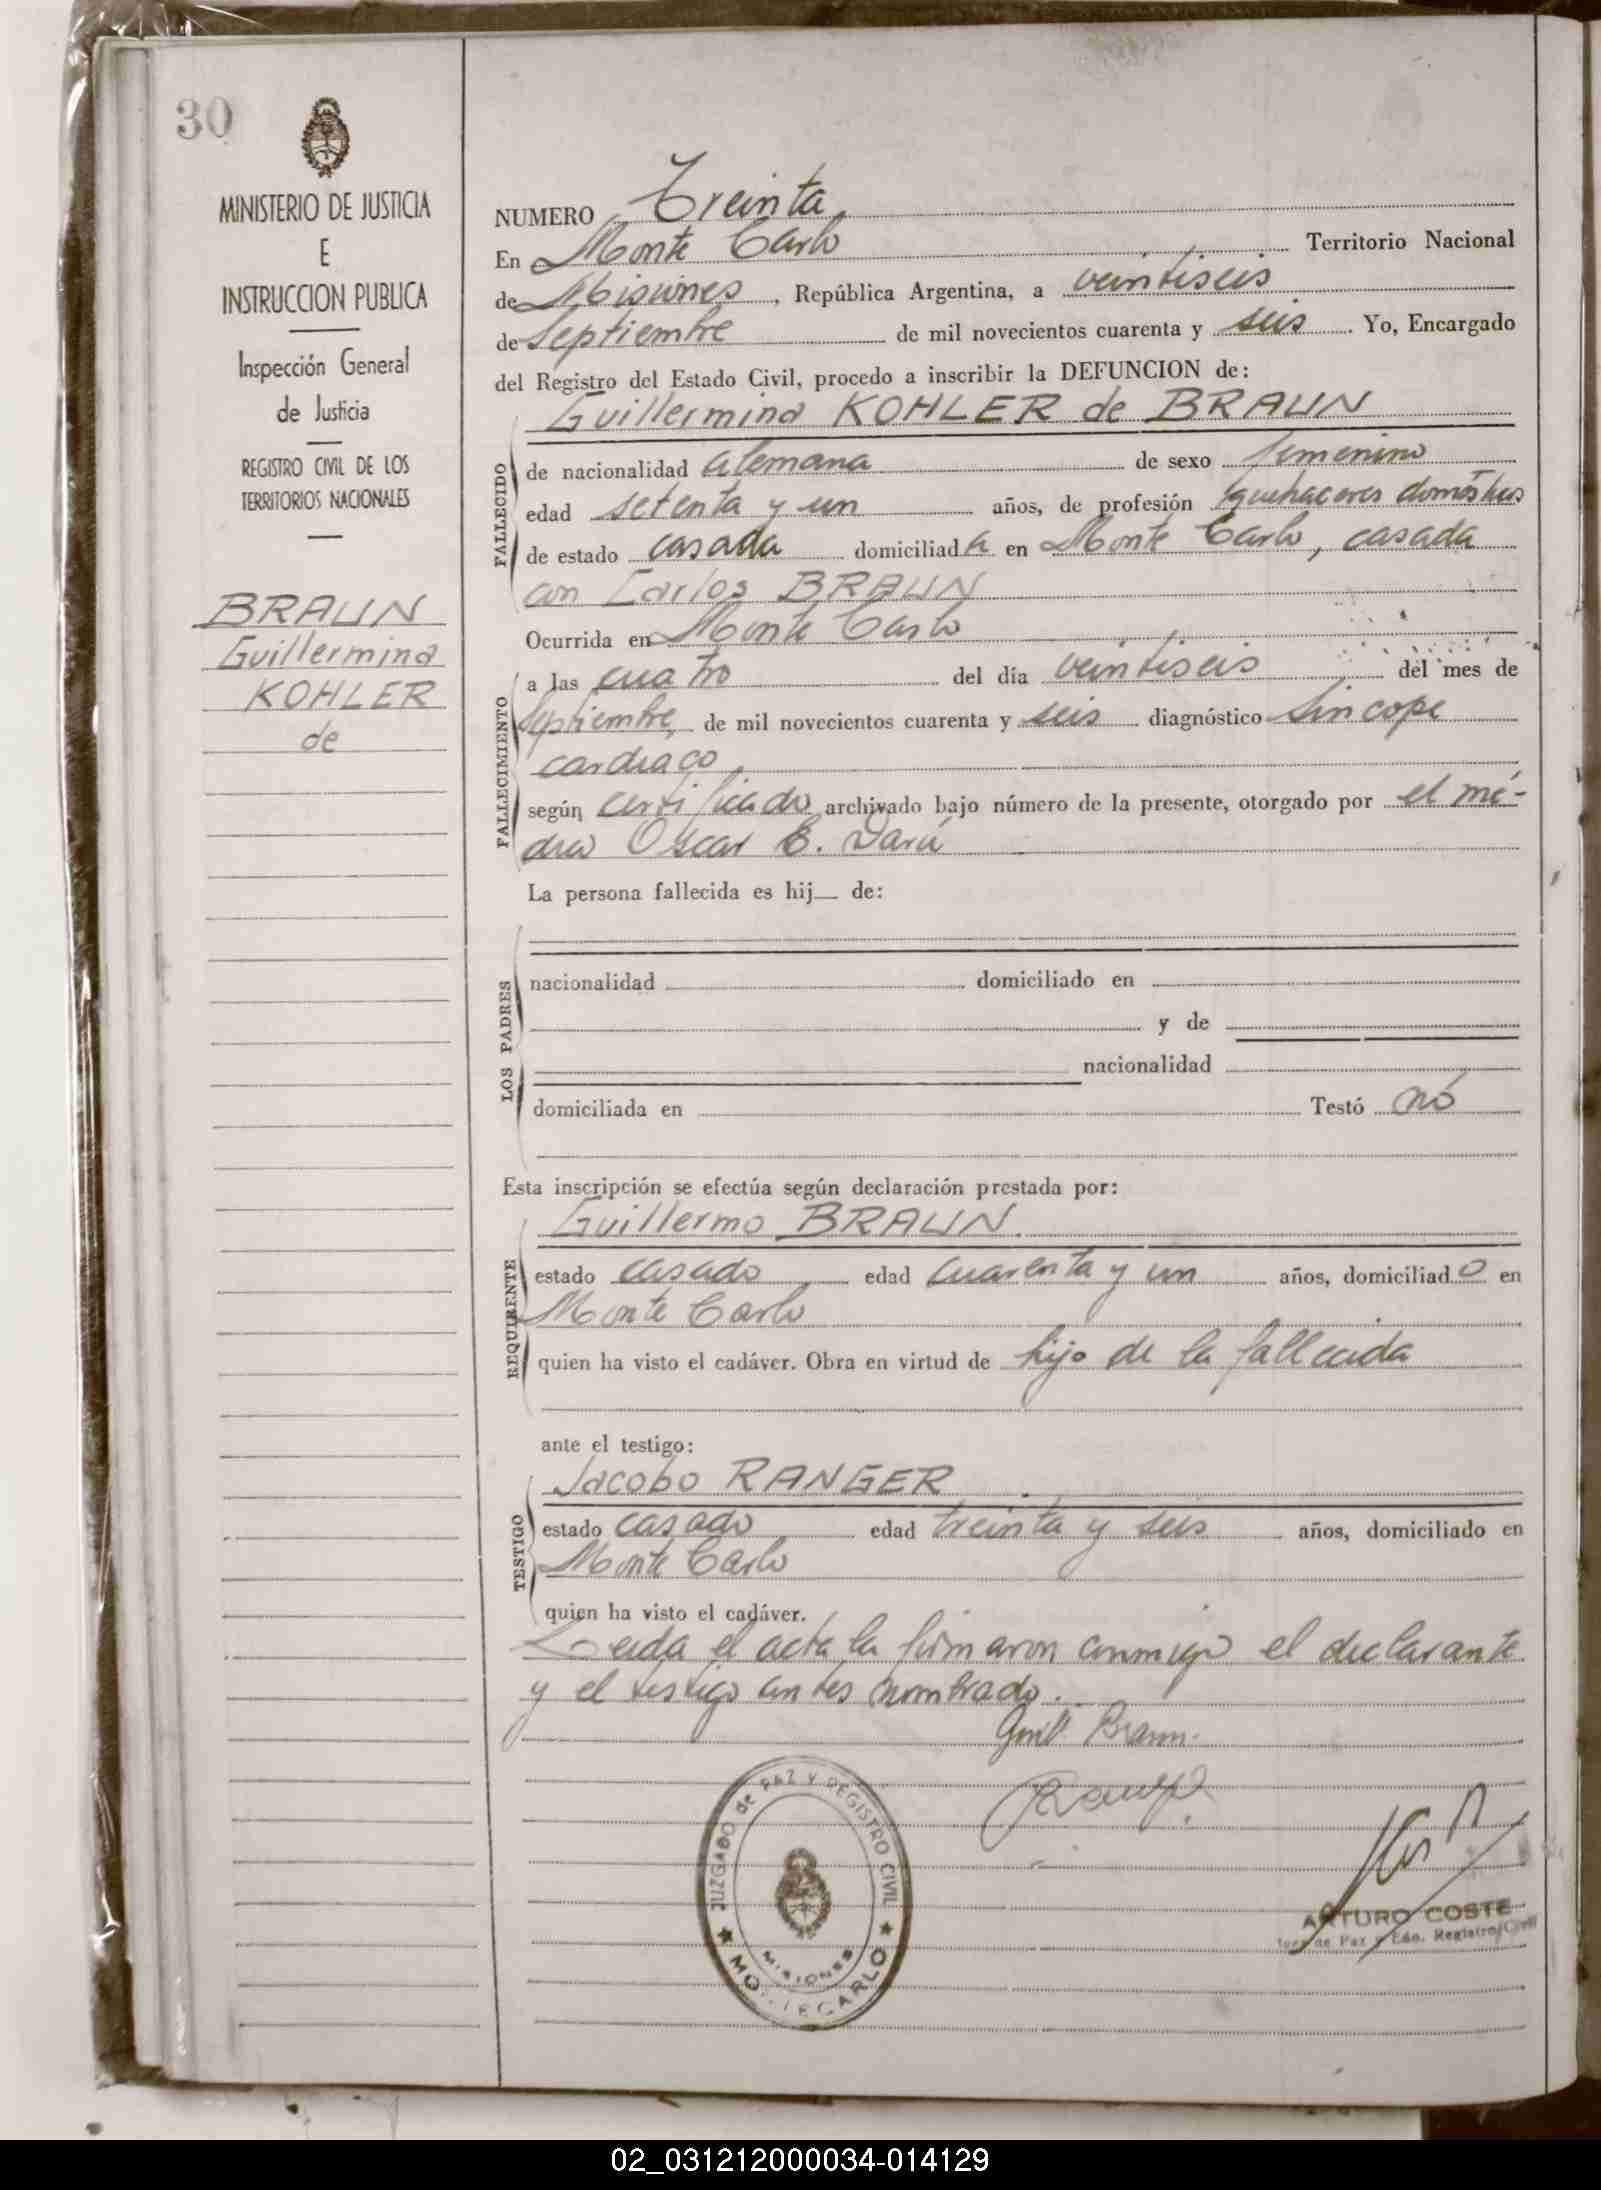 30
MINISTERIO DE JUSTICIA
E
INSTRUCCION PUBLICA
Inspección General
de Justicia
REGISTRO CIVIL DE LOS
TERRITORIOS NACIONALES
BRAUN
Guillermina
KOHLER
de
NUMERO Treinta
En Monte Carlo Territorio Nacional
de Misiones, República Argentina, a veintiseis
de Septiembre de mil novecientos cuarenta y seis. Yo, Encargado
del Registro del Estado Civil, procedo a inscribir la DEFUNCION de:
Guillermina KOHLER de BRAUN
FALLECIDO
de nacionalidad alemana de sexo femenino
edad setenta y un años, de profesión quehaceres domésticos
de estado casada domiciliada en Monte Carlo, casada
con Carlos BRAUN
FALLECIMIENTO
Ocurrida en Monte Carlo
a las cuatro del día veintiseis del mes de
Septiembre, de mil novecientos cuarenta y seis diagnóstico Sincope
cardiaco
según certificado archivado bajo número de la presente, otorgado por el mé-
dico Oscar E. Darú
La persona fallecida es hij__ de:
LOS PADRES
nacionalidad domiciliado en
y de
nacionalidad
domiciliada en Testó nó
Esta inscripción se efectúa según declaración prestada por:
Guillermo BRAUN.
REQUIRENTE
estado casado edad cuarenta y un años, domiciliado en
Monte Carlo
quien ha visto el cadáver. Obra en virtud de hijo de la fallecida
ante el testigo:
Jacobo RANGER
TESTIGO
estado casado edad treinta y seis años, domiciliado en
Monte Carlo
quien ha visto el cadáver.
Leida el acta la firmaron conmigo el declarante
y el testigo antes nombrado.
Guill. Braun.
JUZGADO de PAZ Y REGISTRO CIVIL
MISIONES
MONTECARLO
ARTURO COSTE
Juez de Paz y Edo. Registro Civil
02_031212000034-014129